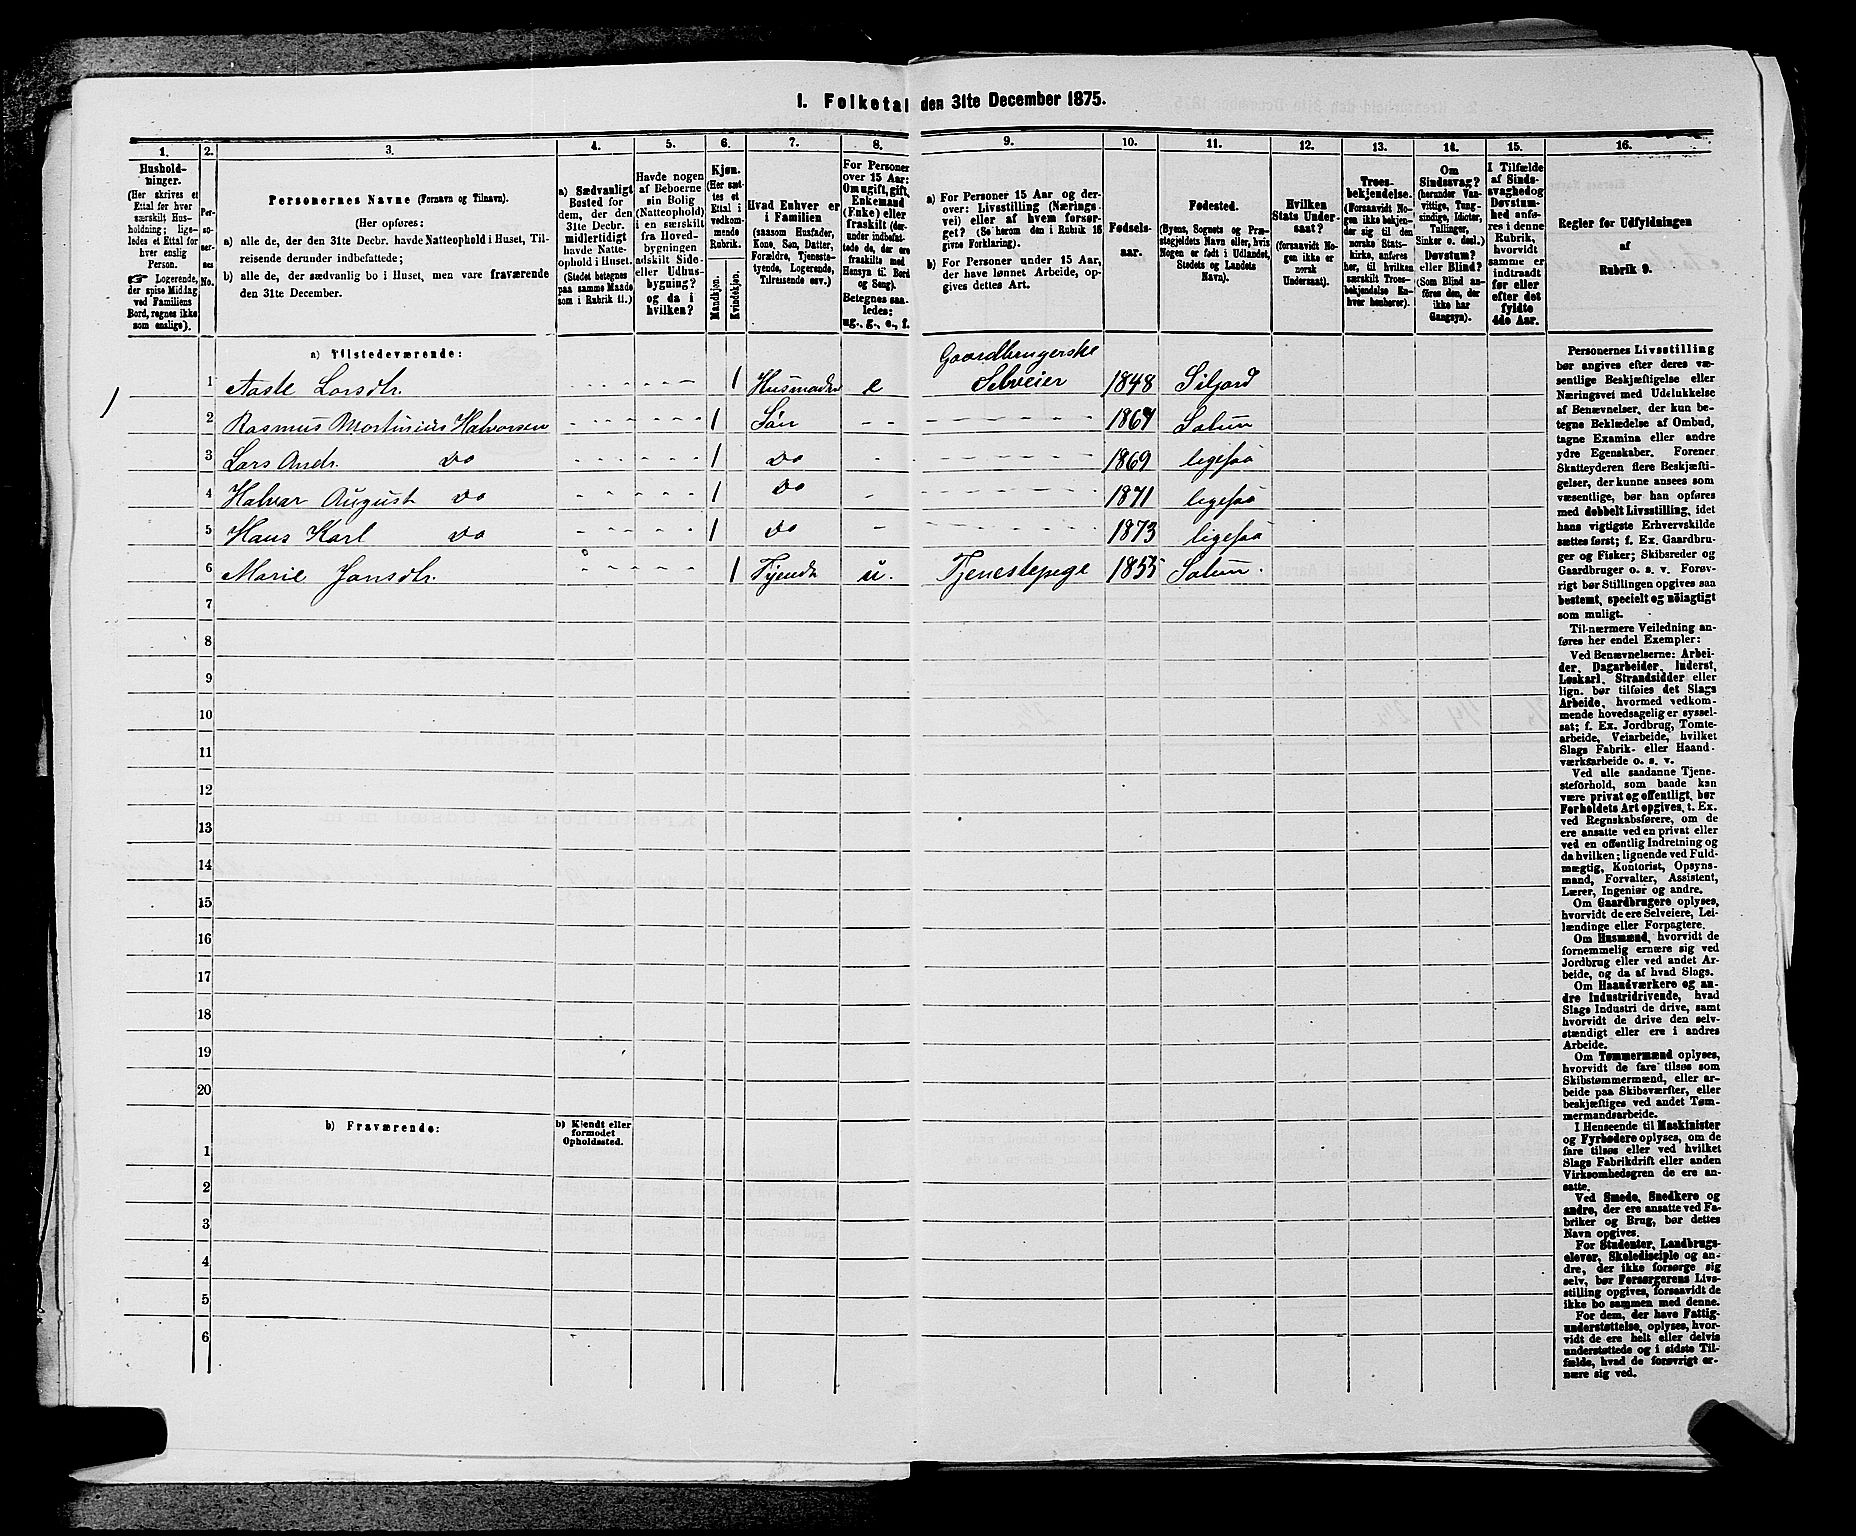 1. Folketal den 31te December 1875.
1. 2. 3. 4. 5. 6. 7. 8. 9. 10. 11. 12. 13. 14. 15. 16.
Hushold-
ninger.
(Her skrives et
Ettal for hver
særskilt Hus-
holdning; lige-
ledes et Ettal for
hver enslig
Person.
☞ Logerende,
der spise Middag
ved Familiens
Bord, regnes ikke
som enslige).
Per-
so-
ner-
nes
No.
Personernes Navne (Fornavn og Tilnavn).
(Her opføres:
a) alle de, der den 31te Decbr. havde Natteophold i Huset, Til-
reisende derunder indbefattede;
b) alle de, der sædvanlig bo i Huset, men vare fraværende
den 31te December.
a) Sædvanligt
Bosted for
dem, der den
31te Decbr.
midlertidigt
havde Natte-
ophold i Huset.
(Stedet betegnes
paa samme Maade
som i Rubrik 11.)
Havde nogen
af Beboerne
sin Bolig
(Natteophold)
i en særskilt
fra Hoved-
bygningen
adskilt Side-
eller Udhus-
bygning?
og da i
hvilken?
Kjøn.
(Her sæt-
tes et
Ettal i
vedkom-
mende
Rubrik.
Mandkjøn.
Kvindekjøn.
Hvad Enhver er
i Familien
(saasom Husfader,
Kone, Søn, Datter,
Forældre, Tjeneste-
tyende, Logerende,
Tilreisende osv.)
For Personer
over 15 Aar:
Om ugift, gift,
Enkemand
(Enke) eller
fraskilt (der-
under indbefat-
tede de, der ere
fraskilte med
Hensyn til Bord
og Seng).
Betegnes saa-
ledes:
ug., g., e., f.
a) For Personer 15 Aar og der-
over: Livsstilling (Nærings-
vei) eller af hvem forsør-
get? (Se herom den i Rubrik 16
givne Forklaring).
b) For Personer under 15 Aar,
der have lønnet Arbeide, op-
gives dettes Art.
Fødsels-
aar.
Fødested.
(Byens, Sognets og Præ-
stegjeldets Navn eller, hvis
Nogen er født i Udlandet,
Stedets og Landets
Navn).
Hvilken
Stats Under-
saat?
(forsaavidt No-
gen ikke er
norsk
Undersaat).
Troes-
bekjendelse.
(Forsaavidt No-
gen ikke bekjen-
der sig til den
norske Stats-
kirke, anføres
her, til hvilken
særskilt Troes-
bekjendelse En-
hver henhører).
Om
Sindssvag?
(herunder Van-
vittige, Tung-
sindige, Idioter,
Tullinger,
Sinker o. desl.)
Døvstum?
eller Blind?
(Som Blind an-
føres den, der
ikke har
Gangsyn).
I Tilfælde
af Sinds-
svaghed og
Døvstum-
hed anfø-
res i denne
Rubrik,
hvorvidt
samme er
indtraadt
før eller
efter det
fyldte
4de Aar.
Regler for Udfyldningen
af
Rubrik 9.
a) Tilstedeværende:
1 1 Aaste Larsdtr. 1 Husmoder e Gaardbrugerske Selveier 1848 Siljord
2 Rasmus Martinius Halvorsen 1 Søn 1867 Solum
3 Lars Andr. do 1 do 1869 ligesaa
4 Halvar August do 1 do 1871 ligesaa
5 Hans Karl do 1 do 1873 ligesaa
6 Marie Jansdtr. 1 Tjendt u. Tjenestepige 1855 Solum.
7
8
9
10
11
12
13
14
15
16
17
18
19
20
b) Fraværende:
b) Kjendt eller
formodet
Opholdssted.
1
2
3
4
5
6
Personernes Livsstilling
bør angives efter deres væ-
sentlige Beskjæftigelse eller
Næringsvei med Udelukkelse
af Benævnelser, der kun be-
tegne Beklædelse af Ombud,
tagne Examina eller andre
ydre Egenskaber. Forener
Skatteyderen flere Beskjæfti-
gelser, der kunne ansees som
væsentlige, bør han opføres
med dobbelt Livsstilling, idet
hans vigtigste Erhvervskilde
sættes først; f. Ex. Gaardbru-
ger og Fisker; Skibsreder og
Gaardbruger o. s. v. Forøv-
rigt bør Stillingen opgives saa
bestemt, specielt og nøiagtigt
som muligt.
Til nærmere Veiledning an-
føres her endel Exempler:
Ved Benævnelserne: Arbei-
der, Dagarbeider, Inderst,
Løskarl, Strandsidder eller
lign. bør tilføies det Slags
Arbeide, hvormed vedkom-
mende hovedsagelig er syssel-
sat; f. Ex. Jordbrug, Tomte-
arbeide, Veiarbeide, hvilket
Slags Fabrik- eller Haand-
værksarbeide o. s. v.
Ved alle saadanne Tjene-
steforhold, som baade kan
være privat og offentligt, bør
Forholdets Art opgives, t. Ex.
ved Regnskabsførere, om de
ere ansatte ved en privat eller
ved en offentlig Indretning og
da hvilken; lignende ved Fuld-
mægtig, Kontorist, Opsyns-
mand, Forvalter, Assistent,
Lærer, Ingeniør og andre.
Om Gaardbrugere oplyses,
hvorvidt de ere Selveiere, Lei-
lændinge eller Forpagtere.
Om Husmænd, hvorvidt de
fornemmelig ernære sig ved
Jordbrug eller ved andet Ar-
beide, og da af hvad Slags.
Om Haandværkere og an-
dre Industridrivende, hvad
Slags Industri de drive, samt
hvorvidt de drive den selv-
stændigt eller ere i andres
Arbeide.
Om Tømmermænd oplyses,
hvorvidt de fare tilsøs som
Skibstømmermænd, eller ar-
beide paa Skibsværfter, eller
beskjæftiges ved andet Tøm-
mermandsarbeide.
I Henseende til Maskinister
og Fyrbødere oplyses, om de
fare tilsøs eller ved hvilket
Slags Fabrikdrift eller anden
Virksomhedsgren de ere an-
satte.
Ved Smede, Snedkere og
andre, der ere ansatte ved Fa-
briker og Brug, bør dettes
Navn opgives.
For Studenter, Landbrugs-
elever, Skoledisciple og an-
dre, der ikke forsørge sig
selv, bør Forsørgerens Livs-
stilling opgives, forsaavidt de
ikke bo sammen med denne.
For dem, der have Fattig-
understøttelse, oplyses, hvor-
vidt de ere helt eller delvis
understøttede og i sidste Til-
fælde, hvad de forøvrigt er-
nære sig ved.